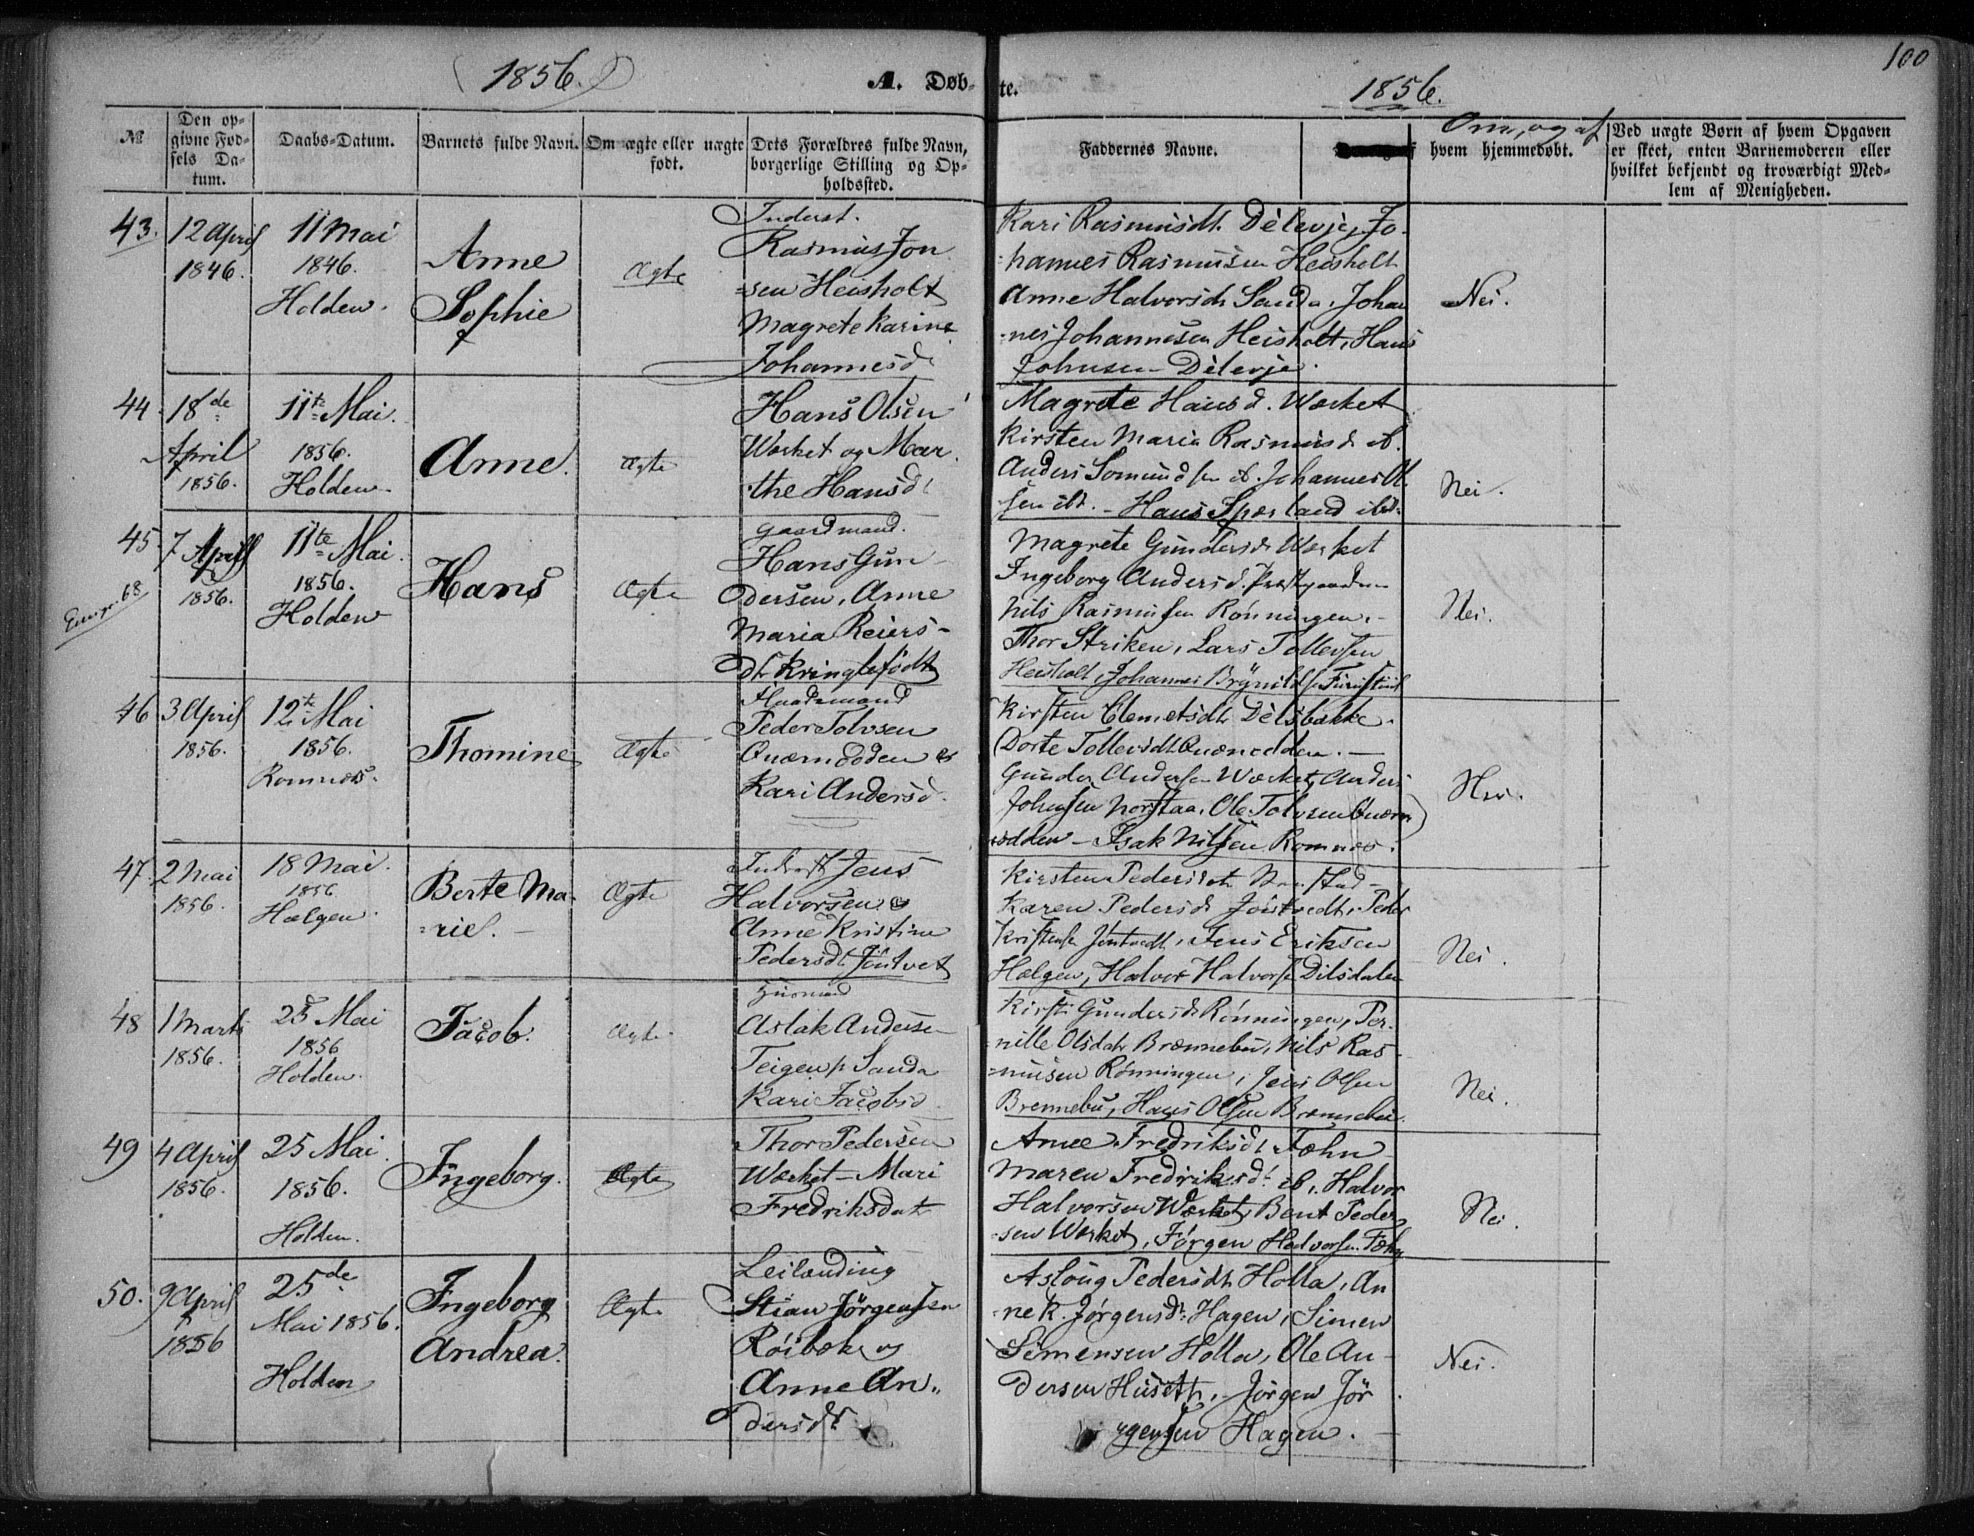 1856.
A. Døb-
te.
1856.
100
№
Den op-
givne Fød-
sels Da-
tum.
Daabs-Datum.
Barnets fulde Navn.
Om ægte eller uægte
født.
Dets Forældres fulde Navn,
borgerlige Stilling og Op-
holdssted.
Faddernes Navne.
Om, og af
hvem hjemmedøbt.
Ved uægte Børn af hvem Opgaven
er skeet, enten Barnemoderen eller
hvilket bekjendt og troværdigt Med-
lem af Menigheden.
43.
12 April
1846.
11 Mai
1846.
Holden.
Anne
Sophie
Ægte
Inderst.
Rasmus Jon
sen Heisholt
Magrete Karine
Johannesd
Kari Rasmusdt. Dëlevje, Jo-
hannes Rasmusen Heisholt
Anne Halvorsdt Sanda, Johan
nes Johannesen Heisholt, Hans
Johnsen Dëlevje.
Nei.
44.
18de
April
1856.
11te Mai.
1856.
Holden.
Anne.
Ægte
Hans Olsen
Værket og Mar
the Hansd
Magrete Hansd. Værket
Kirsten Maria Rasmusd ib.
Anders Somundsen ib. Johannes Ol
sen ibd. - Hans Spærland ibd.
Nei.
45
7 April
1856.
11te Mai.
1856.
Holden
Hans
Ægte
Gaardmand.
Hans Gun-
dersen, Anne
Maria Reiers-
dt Kringlefödt
Magrete Gundersd Værket
Ingeborg Andersd. Præstgaarden
Nils Rasmusen Rönningen,
Thor Striken, Lars Tollevsen
Heisholt, Johannes Brynilds.
Nei.
46
3 April
1856.
12te Mai
1856.
Romnæs.
Thomine
Ægte
Peder Tolvsen
Qværnodden &
Kari Andersd.
Kirsten Clemetsdt Dëlsbakke.
Dorte Tollevsdt Qværnodden. -
Gunder Andersen Værket, Anders
Johnsen Norstaa, Ole Tolvsen Qværn
odden - Isak Nilsen Romnæs.
Nei.
47.
2 Mai
1856.
18 Mai.
1856
Hælgen.
Berte Ma-
rie.
Ægte
Inderst Jens
Halvorsen &
Anne Kristine
Pedersdt Jöntvet
Kirsten Pedersdt
Karen Pedersd Jöntvedt, Peder
Kristens. Jöntvedt, Jens Eriksen
Hælgen, Halvor Halvors. Dilsdalen
Nei.
48
1 Marts
1856.
25 Mai
1856
Holden.
Jacob.
Ægte
Huusmand
Aslak Andersen
Teigen p. Sanda
Kari Jacobsd
Kirsti Gundersd Rönningen, Per-
nille Olsdatr Brænnebu, Nils Ras-
musen Rönningen, Jens Olsen
Brennebu, Hans Olsen Brænnebu
Nei.
49
4 April
1856.
25 Mai.
1856.
Holden.
Ingeborg.
Ægte
Thor Pedersen
Værket - Mari
Fredriksdat
Anne Fredriksdt Fæhn
Maren Fredriksdt ib, Halvor
Halvorsen Værket, Bent Peder
sen Værket, Jörgen Halvorsen Fæhn
Nei.
50.
9 April
1856
25de
Mai 1856.
Holden
Ingeborg
Andrea.
Ægte
Leilænding
Stian Jörgensen
Röibæk og
Anne An-
dersdt
Aslöug Pedersdt Holla, An
ne K. Jörgensdt Hagen, Simen
Semensen Holla, Ole An-
dersen Huseth, Jörgen Jör
gensen Hagen.
Nei.